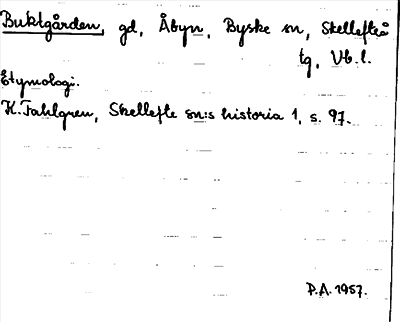 Buktgården, gd, Åbyn, Byske sn, Skellefteå
tg, Vb. l.
Etymologi.
K. Fahlgren, Skellefte sn:s historia 1, s. 97.
P.A. 1957.